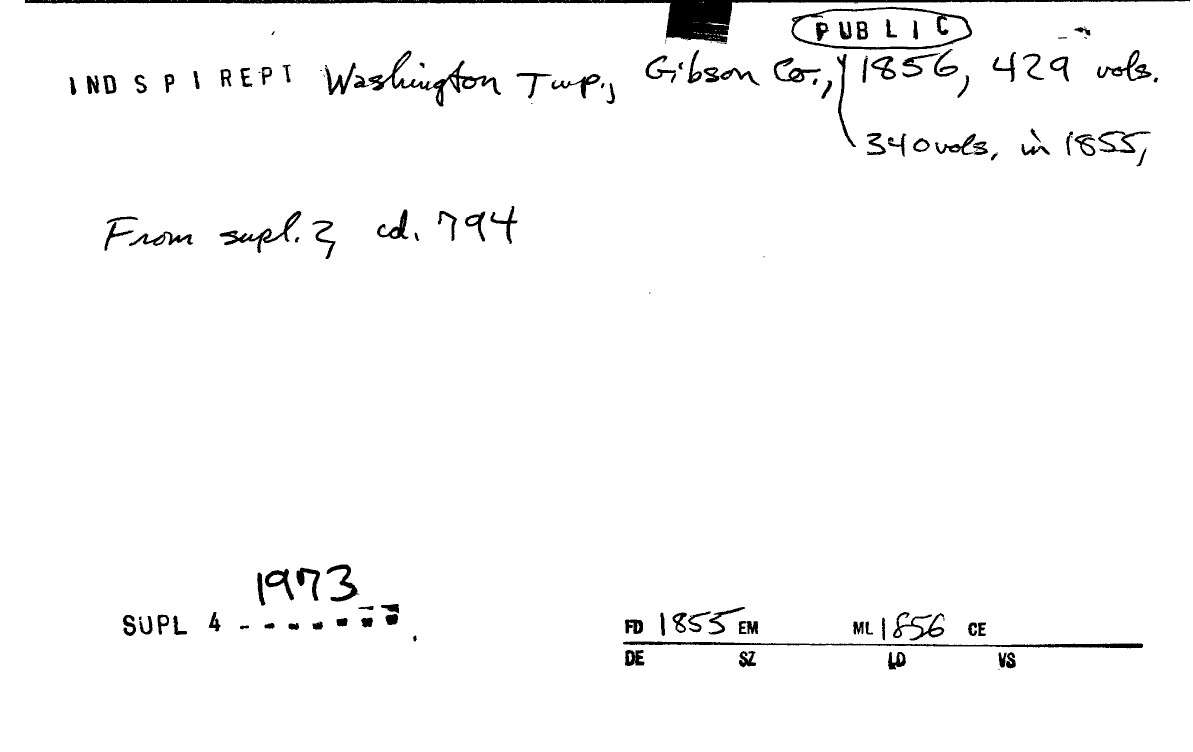 PUBLIC
INDSPIREPT Washington Twp., Gibson Co., 1856, 429 vols.
340 vols. in 1855,
From supl. 2, cd. 794
1973
SUPL 4
FD 1855 EM ML 1856 CE
DE SZ LD VS